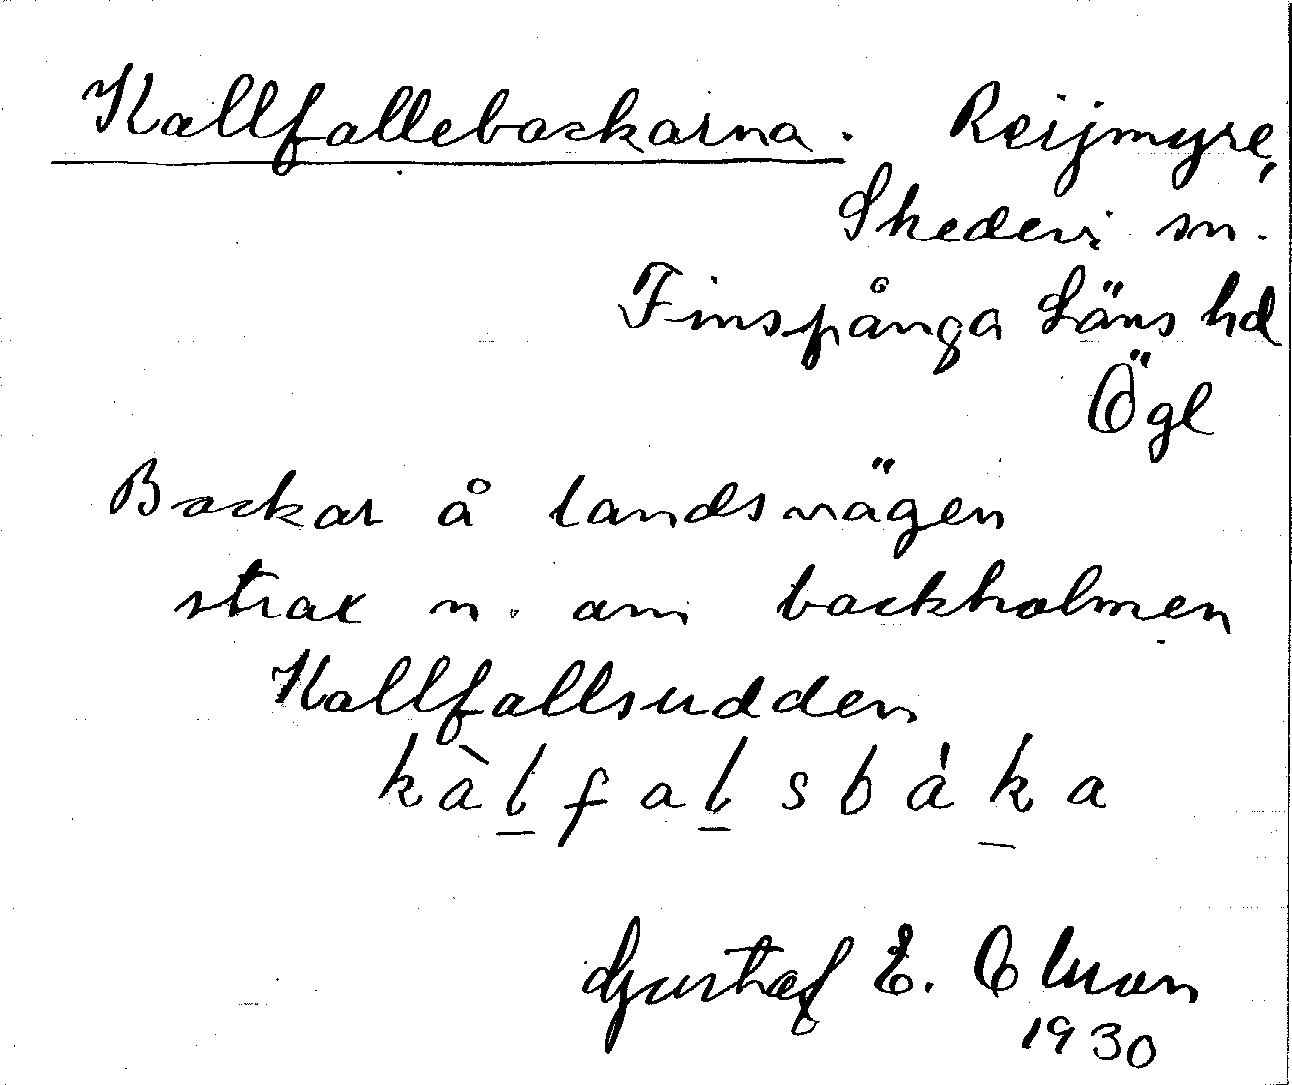 Kallfallebackarna. Reijmyre,
Skedevi sn.
Finspånga Läns hd
Ögl
Backar å landsvägen
strax n. om backholmen
Kallfallsudden
kàl̲fal̲sbák̲a
Gustaf E. Olsson
1930